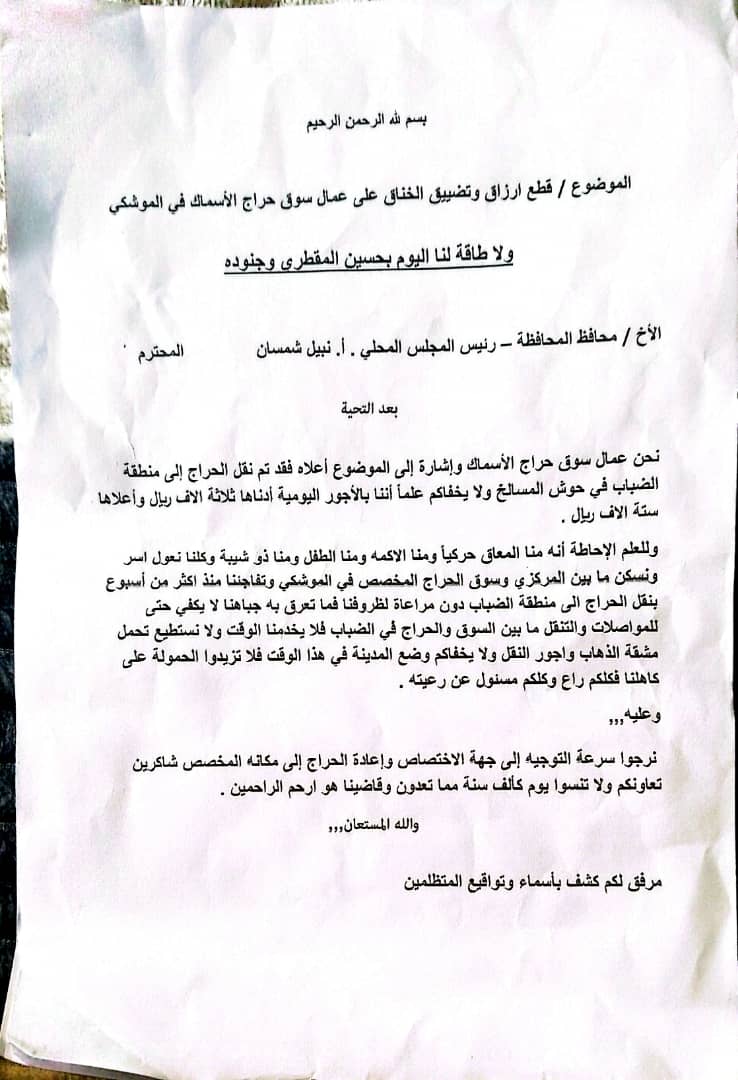 بسم لله الرحمن الرحيم
الموضوع / قطع ارزاق وتضييق الخناق على عمال سوق حراج الأسماك في الموشكي
ولا طاقة لنا اليوم بحسين المقطري وجنوده
الأخ / محافظ المحافظة – رئيس المجلس المحلي . أ. نبيل شمسان المحترم
بعد التحية
نحن عمال سوق حراج الأسماك وإشارة إلى الموضوع أعلاه فقد تم نقل الحراج إلى منطقة
الضباب في حوش المسالخ ولا يخفاكم علماً أننا بالأجور اليومية أدناها ثلاثة الاف ريال وأعلاها
ستة الاف ريال .
وللعلم الإحاطة أنه منا المعاق حركياً ومنا الاكمه ومنا الطفل ومنا ذو شيبة وكلنا نعول اسر
ونسكن ما بين المركزي وسوق الحراج المخصص في الموشكي وتفاجننا منذ اكثر من أسبوع
بنقل الحراج الى منطقة الضباب دون مراعاة لظروفنا فما تعرق به جباهنا لا يكفي حتى
للمواصلات والتنقل ما بين السوق والحراج في الضباب فلا يخدمنا الوقت ولا نستطيع تحمل
مشقة الذهاب واجور النقل ولا يخفاكم وضع المدينة في هذا الوقت فلا تزيدوا الحمولة على
كاهلنا فكلكم راع وكلكم مسئول عن رعيته .
وعليه,,,
نرجوا سرعة التوجيه إلى جهة الاختصاص وإعادة الحراج إلى مكانه المخصص شاكرين
تعاونكم ولا تنسوا يوم كألف سنة مما تعدون وقاضينا هو ارحم الراحمين .
والله المستعان,,,
مرفق لكم كشف بأسماء وتواقيع المتظلمين